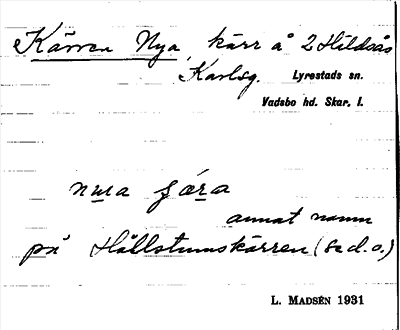 Kärren Nya, kärr å 2 Hildsås
Karlsg. Lyrestads sn.
Vadsbo hd. Skar. l.
nya ɕæra
annat namn
på Hållstunskärren (se d. o.)
L. MADSÉN 1931